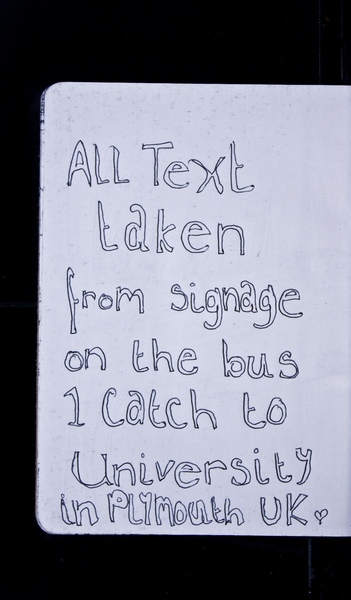 ALL Text
taken
from signage
on the bus
1 Catch to
University
in PLYMouth UK